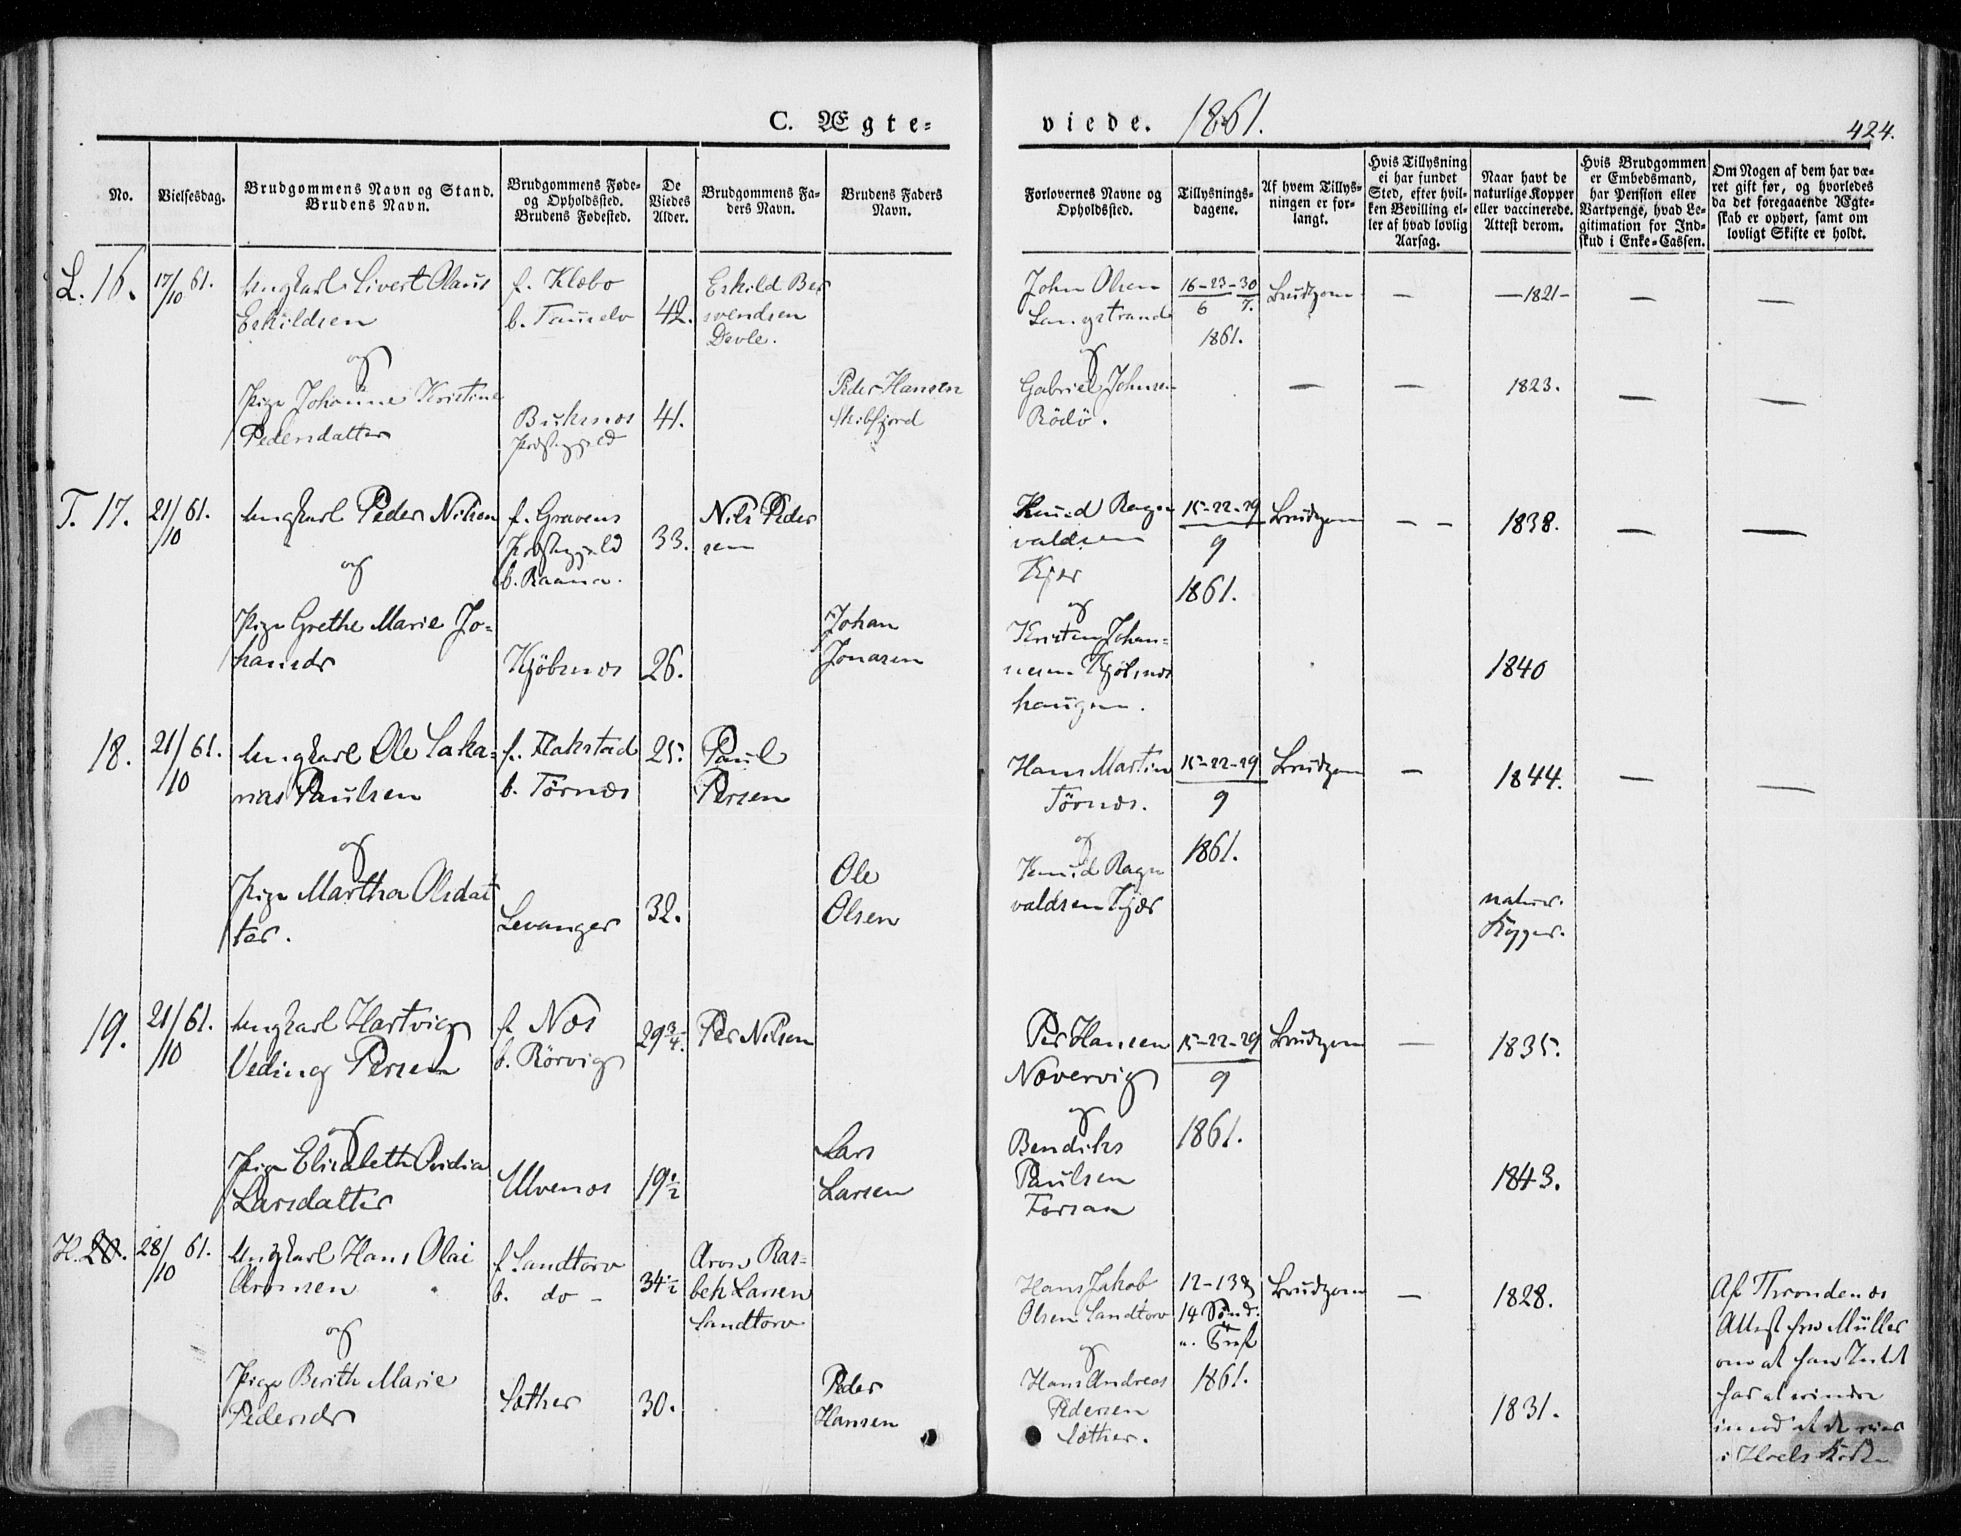 C. Ægte=
viede. 1861.
424.
No.
Vielsesdag.
Brudgommens Navn og Stand.
Brudens Navn.
Brudgommens Føde-
og Opholdssted.
Brudens Fødested.
De
Viedes
Alder.
Brudgommens Fa-
ders Navn.
Brudens Faders
Navn.
Forlovernes Navne og
Opholdssted.
Tillysnings-
dagene.
Af hvem Tillys-
ningen er for-
langt.
Hvis Tillysning
ei har fundet
Sted, efter hvil-
ken Bevilling el-
ler af hvad lovlig
Aarsag.
Naar havt de
naturlige Kopper
eller vaccinerede.
Attest derom.
Hvis Brudgommen
er Embedsmand,
har Pension eller
Vartpenge, hvad Le-
gitimation for Ind-
skud i Enke-Cassen.
Om Nogen af dem har væ-
ret gift før, og hvorledes
da det foregaaende Ægte-
skab er ophørt, samt om
lovligt Skifte er holdt.
L. 16.
17/10 61.
Ungkarl Sivert Olaus
Eskildsen
og
Pige Johanne Kristine
Pedersdatter
f. Klæbo
b. Tamselv
Buksnæs
Præstegjeld
42.
41.
Eskild Ber
svendsen
Devle.
Peder Hansen
Skibfjord
John Olsen
Langstrand
og
Gabriel Johnsen
Rödö.
16-23-30
6 7.
1861.
Brudgom
—
—
—
—1821—
1823.
—
—
—
—
T. 17.
21/10 61.
Ungkarl Peder Nilsen
og
Pige Grethe Marie Jo=
hansdr
f. Gravens
Præstegjeld
b. Raana.
Kjöbsnæs
33.
26.
Nils Peder
sen
Johan
Jonasen
Knud Ragn
valdsen
Kjær
og
Kristen Johan=
nesen Kjöbsnæs
haugen.
15-22-29
9
1861.
Brudgom
— —
1838.
1840
—
—
18.
21/10 61.
Ungkarl Ole Saka=
rias Paulsen
og
Pige Martha Olsdat
ter.
f. Flakstad
b. Törnæs
Levanger
25.
32.
Paul
Persen
Ole
Olsen
Hans Martin
Törnæs.
og
Knud Ragn
valdsen Kjær
15-22-29
9
1861.
Brudgom
—
1844.
naturl.
Kopper.
—
—
19.
21/10 61.
Ungkarl Hartvig
Veding Persen
og
Pige Elisabeth Ovidia
Larsdatter
f. Næs
b. Rörvig
Ulvenæs
29 3/4.
19 1/2
Per Nilsen
Lars
Larsen
Per Hansen
Nævervig
og
Bendiks
Paulsen
Forsan
15-22-29
9
1861.
Brudgom
—
1835.
1843.
H. 20.
28/10 61.
Ungkarl Hans Olai
Aronsen
og
Pige Berith Marie
Pedersdr
f. Sandtorv
b. do —
Sæther
34 1/2
30.
Aron Ras=
bek Larsen
Sandtorv
Peder
Hansen
Hans Jakob
Olsen Sandtorv
og
Hans Andreas
Pedersen
Sæther.
12-13 &
14 Sönd.
e. Tref
1861.
Brudgom
—
1828.
1831.
Af Throndenæs
Attest fra Müller
om at han Intet
har at erindre
imod at de vies
i Hoels Kirke